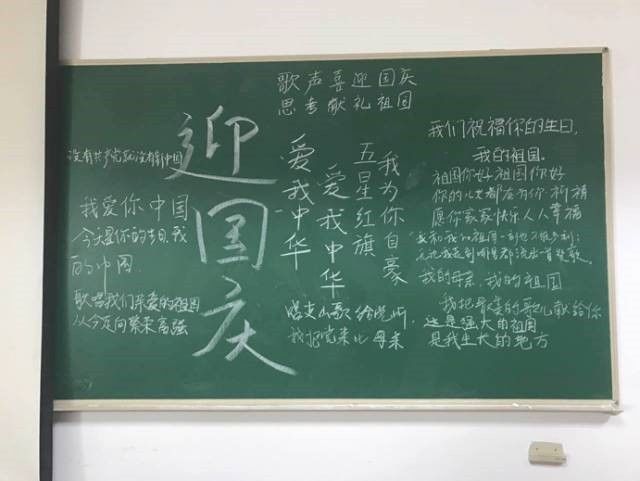 歌声喜迎国庆
思考献礼祖国
迎国庆
没有共产党就没有新中国
我爱你中国
今天是你的生日,我
的中国
歌唱我们亲爱的祖国
从今走向繁荣富强
爱我中华
爱我中华
五星红旗
我为你自豪
唱支山歌给党听
我把党来比母亲
我们祝福你的生日,
我的祖国。
祖国你好祖国你好
你的儿女都在为你祈福
愿你家家快乐人人幸福
我和我的祖国一刻也不能分割;
无论我走到哪里都流出一首赞歌。
我的母亲,我的祖国
我把最美的歌儿献给你
这是强大的祖国
是我生长的地方